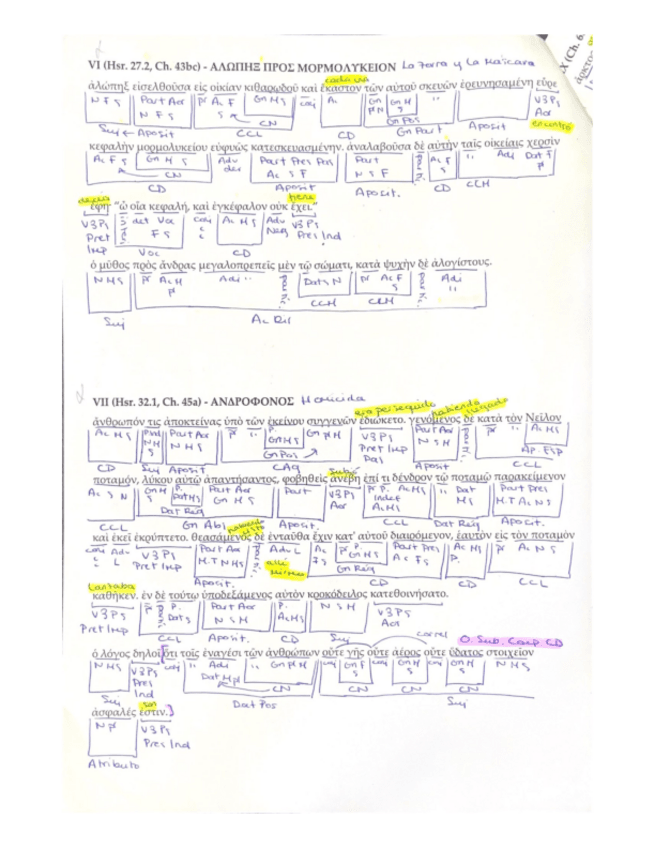 VI (Hsr. 27.2, Ch. 43bc) - ΑΛΩΠΗΞ ΠΡΟΣ ΜΟΡΜΟΛΥΚΕΙΟΝ La zorra y La Máscara
X (Ch. 6
cada una
ἀλώπηξ εἰσελθοῦσα εἰς οἰκίαν κιθαρῳδοῦ καὶ ἕκαστον τῶν αὐτοῦ σκευῶν ἐρευνησαμένη εὗρε
N F S Part Aor N F S pr Ac F S Gn M S conj Ac Gn pl N Gn M S " V3Ps Aor
CN Gn Pos encontró
Suj ← Aposit CCL CD Gn Part Aposit
κεφαλὴν μορμολυκείου εὐφυῶς κατεσκευασμένην. ἀναλαβοῦσα δὲ αὐτὴν ταῖς οἰκείαις χερσὶν
Ac F S Gn M S Adv Part Pres Pas Ac S F Part N S F Ac F S " Adj Dat F pl
CN
CD Aposit Aposit. CD CCM
tiene
ἔφη· "ὦ οἵα κεφαλή, καὶ ἐγκέφαλον οὐκ ἔχει."
V3Ps Pret Imp det Voc F S Ac M S Adv Neg V3Ps Pres Ind
Voc CD
ὁ μῦθος πρὸς ἄνδρας μεγαλοπρεπεῖς μὲν τῷ σώματι, κατὰ ψυχὴν δὲ ἀλογίστους.
N M S pr Ac M pl Adj " Dat S N pr Ac F S Adj "
CCM CCM
Suj
VII (Hsr. 32.1, Ch. 45a) - ΑΝΔΡΟΦΟΝΟΣ Homicida
era perseguido habiendo llegado
ἄνθρωπόν τις ἀποκτείνας ὑπὸ τῶν ἐκείνου συγγενῶν ἐδιώκετο. γενόμενος δὲ κατὰ τὸν Νεῖλον
Ac M S N M S Part Aor N M S pr " P. Gn M S Gn pl M V3Ps Pret Imp Pas Part Aor N S M pr " Ac M S
Gn Pos
CD Suj Aposit CAg Aposit CCL
ποταμόν, λύκου αὐτῷ ἀπαντήσαντος, φοβηθεὶς ἀνέβη ἐπί τι δένδρον τῷ ποταμῷ παρακείμενον
Gn M S P. Dat M S Part Aor Gn M S Part V3Ps Aor pr Ac N S Indef " Dat M S Part Pres
Dat Reg
CCL Gn Abs Aposit. CCL Dat Reg Aposit.
habiendo visto
καὶ ἐκεῖ ἐκρύπτετο. θεασάμενος δὲ ἐνταῦθα ἔχιν κατ' αὐτοῦ διαιρόμενον, ἑαυτὸν εἰς τὸν ποταμὸν
Adv L V3Ps Pret Imp Part Aor Adv L Ac pr P. Gn M S Part Pres Ac M S P. pr
allí mismo Gn Reg
Aposit. CD CD CCL
καθῆκεν. ἐν δὲ τούτῳ ὑποδεξάμενος αὐτὸν κροκόδειλος κατεθοινήσατο.
V3Ps Pret Imp pr P. Dat M S Part Aor N S M P. Ac M S N S M V3Ps Aor
CCL Aposit. CD Suj
correl O. Sub. Comp CD
ὁ λόγος δηλοῖ ὅτι τοῖς ἐναγέσι τῶν ἀνθρώπων οὔτε γῆς οὔτε ἀέρος οὔτε ὕδατος στοιχεῖον
N M S V3Ps Pres Ind conj " Adj Dat M pl " Gn pl M conj Gn F S conj Gn M S conj Gn N S
CN CN CN CN
Suj Dat Pos Suj
ἀσφαλές ἐστιν.
V3Ps Pres Ind
Atributo